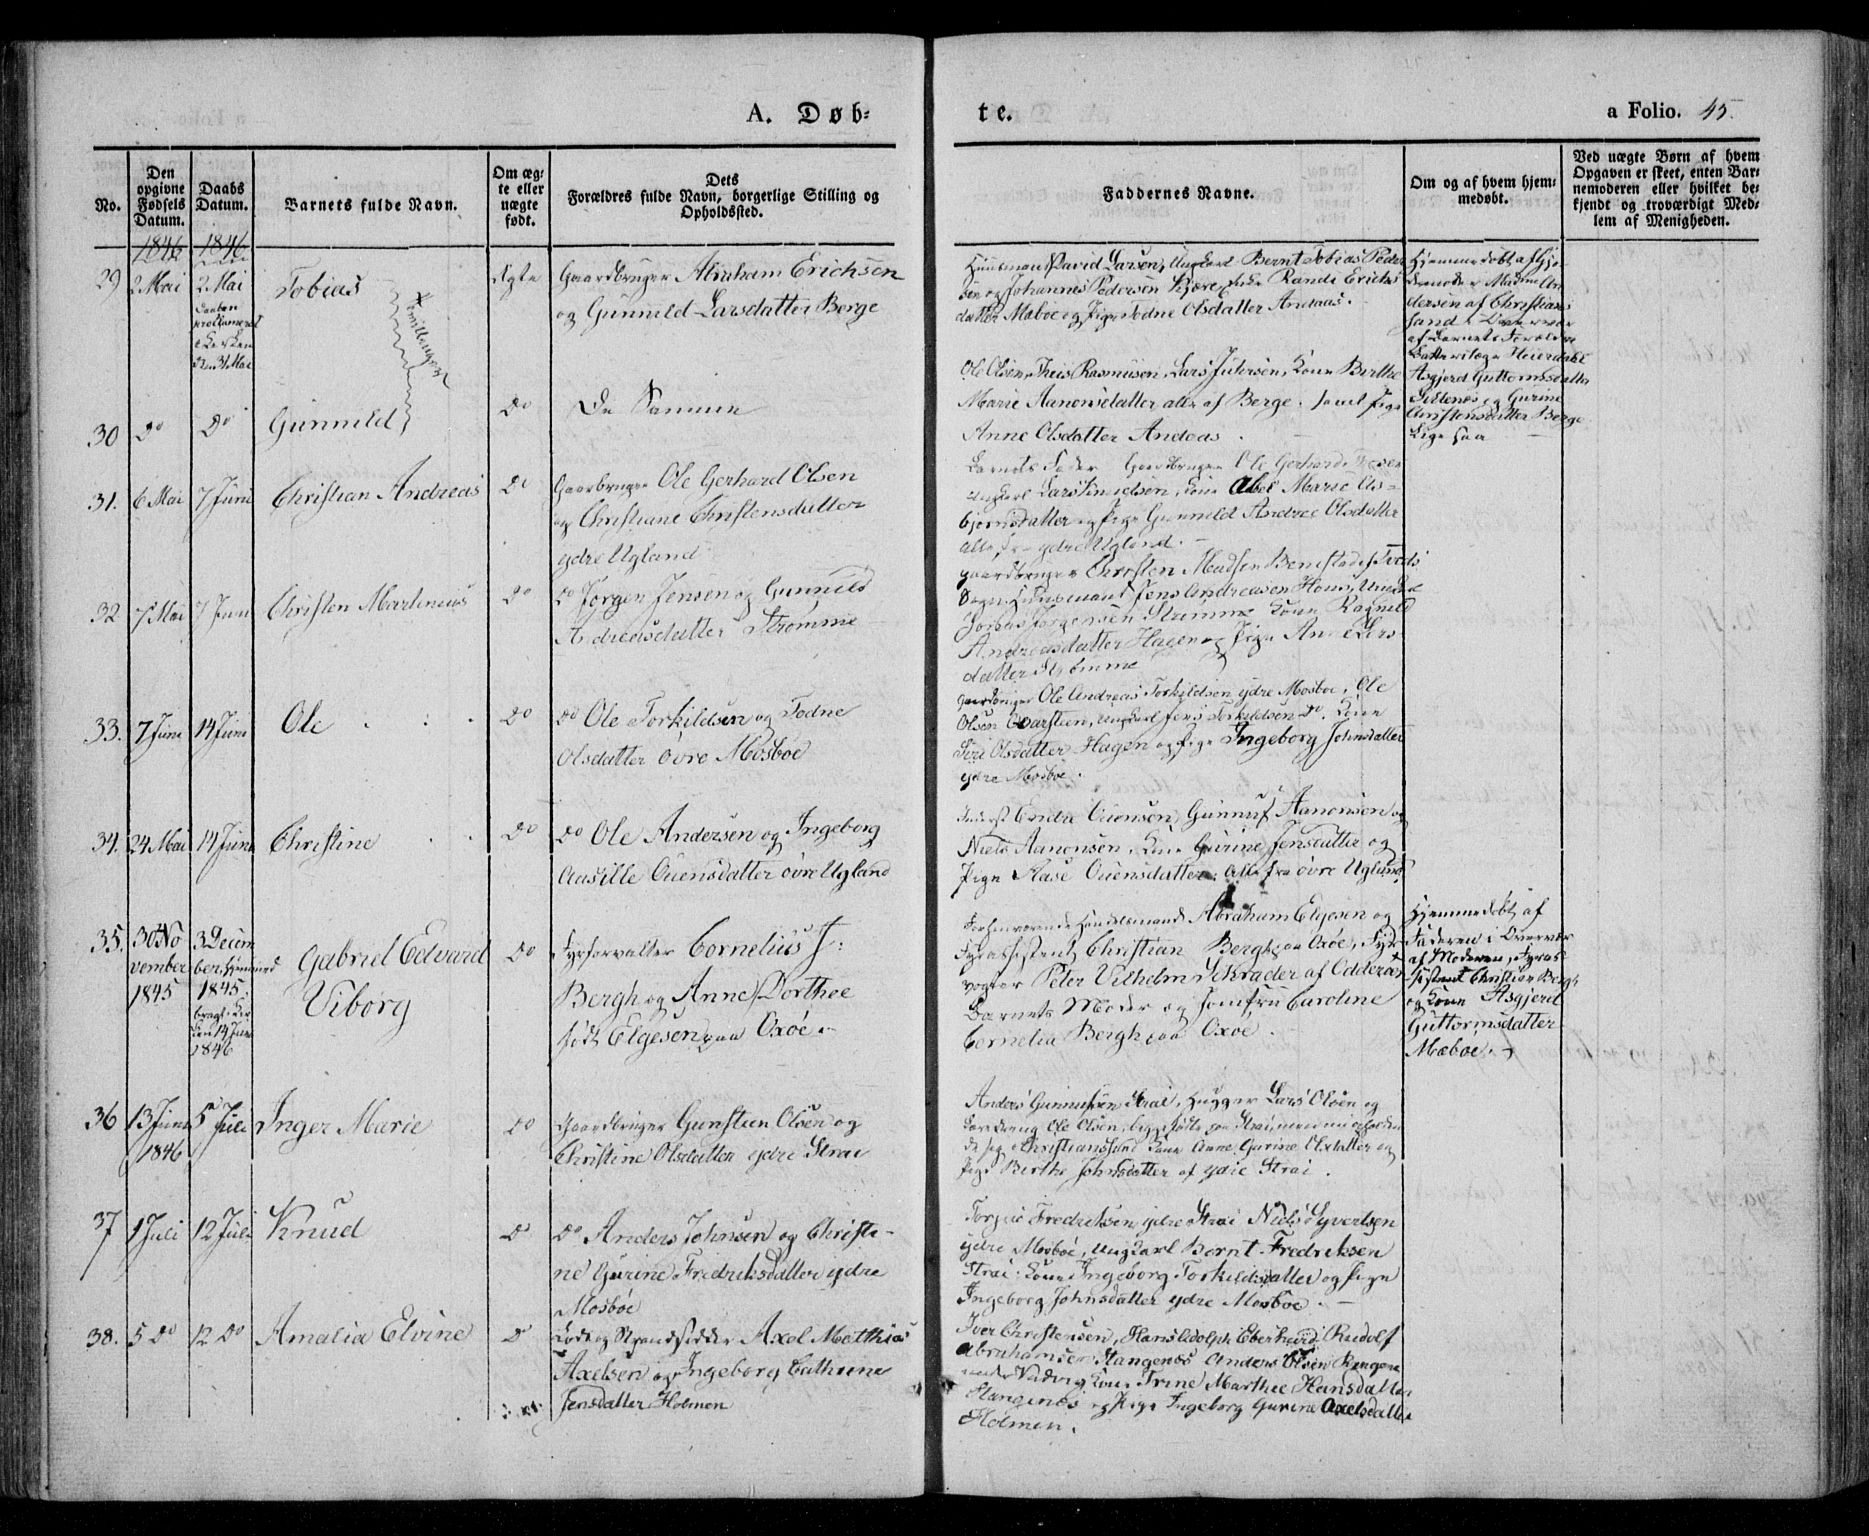 A. Døb-
te.
a Folio. 45.
No.
Den opgivne Fødsels Datum.
Daabs Datum.
Barnets fulde Navn.
Om ægte eller uægte født.
Dets Forældres fulde Navn, borgerlige Stilling og Opholdssted.
Faddernes Navne.
Om og af hvem hjemmedøbt.
Ved uægte Børn af hvem Opgaven er skeet, enten Barnemoderen eller hvilket bekjendt og troværdigt Medlem af Menigheden.
1846 1846
29 2 Mai 2 Mai Tobias Ægte Gaardbruger Abraham Erichsen
og Gunnild Larsdatter Berge
Daaben
den 31 Mai
Tvillinger
Huusmand David Larsen, Ungkarl Bernt Tobias Peder
sen og Johannes Pedersen Kjære, Randi Erichs
datter Mæboe og Pige Todne Olsdatter Andaas.
Hjemmedøbt af Gjor
demoder Maren An
dersen af Christian
sand
af Barnets Forældre
Asgjerd Guttormsdatter
og Gurine
Christensdatter Berge
30 Do Do Gunnild Do De Samme
Ole Olsen, Theis Rasmusen, Lars Julersen, Kone Birthe
Marie Aanonsdatter alle af Berge. samt Pige
Anne Olsdatter Andaas.
Lige saa
31. 6 Mai 7 Juni Christian Andreas Do Gaardbruger Ole Gerhard Olsen
og Christiane Christensdatter
ydre Ugland
Barnets Fader Gaardbruger Ole Gerhard
Ungkarl Kone Abel Marie As-
bjørnsdatter og Pige Gunnild Andree Olsdatter
alle fra ydre Ugland.
32 7 Mai 7 Juni Christen Martinius Do Do Jørgen Jensen og Gunnild
Andreasdatter Strømme
Gaardbruger Christen Madsen Benestad
Sogn, Huusmand Jens Andreassen Hons, Ungkarl
Jonas Jørgensen Strømme Kone Ragnild
Andreasdatter Hagen og Pige Anne Lars
datter Strømme
33. 7 Juni 14 Juni Ole Do Do Ole Torkildsen og Todne
Olsdatter øvre Mosbøe
Gaardbruger Ole Andreas Torkildsen ydre Mosboe, Ole
Olsen Ungkarl Jens Torkildsen Do, Kone
Siri Olsdatter Hagen og Pige Ingeborg Johnsdatter
ydre Mosboe.
34. 24 Mai 14 Juni Christine Do Do Ole Andersen og Ingeborg
Aasille Ouensdatter øvre Ugland
Inderst Endre Ouensen, Gunnuf Aanonsen og
Niels Aanonsen, Kone Gurine Jensdatter og
Pige Aase Ouensdatter. Alle fra øvre Ugland
35. 30 No
vember
1845
3 Decem
ber hjemmed
1845.
bragt i Kir
ken 14 Juni
1846
Gabriel Edvard
Viborg
Do
Fyrforvalter Cornelius J:
Bergh og Anne Dorthee
født Elgesen paa Oxøe.
Forhenværende Handelsmand Abraham Elgesen og
Fyrassistent Christian Bergh paa Oxøe, Fyr
vogter Peter Vilhelm Schrader af Odderøe
Barnets Moder og Jomfru Caroline
Cornelia Bergh paa Oxøe.
Hjemmedøbt af
Faderen i Overvær
af Moderen, Fyras
sistent Christian Bergh
og Kone Asgjerd
Guttormsdatter
Mæboe.
36 13 Juni
1846
5 Juli Inger Marie Do Gaardbruger Gunsteen Olsen og
Christine Olsdatter ydre Strai
Anders Gunnufsen Strai, Hugger Lars Olsen og
Ole Olsen, begge fødte paa Strai, men nu
Christianssand Kone Anne Gurine Olsdatter og
Pige Birthe Johnsdatter af ydre Strai.
37 1 Juli 12 Juli Knud Do Do Anders Johnsen og Christi-
ne Gurine Fredriksdatter ydre
Mosbøe
Torjus Fredriksen ydre Strai Niels Syvertsen
ydre Mosbøe, Ungkarl Bernt Fredriksen
Strai: Kone Ingeborg Torkildsdatter og Pige
Ingeborg Johnsdatter ydre Mosboe.
38. 5 Do 12 Do Amalia Elvine Do Lods og Strandsidder Axel Mathias
Axelsen og Ingeborg Cathrine
Jensdatter Holmen
Iver Christensen, Hans Adolph Eberhard Rudolf
Abrahamsen Stangenæs Anders Olsen
Kone Trine Marthee Hansdatter
Stangenæs og Pige Ingeborg Gurine Axelsdatter
Holmen.